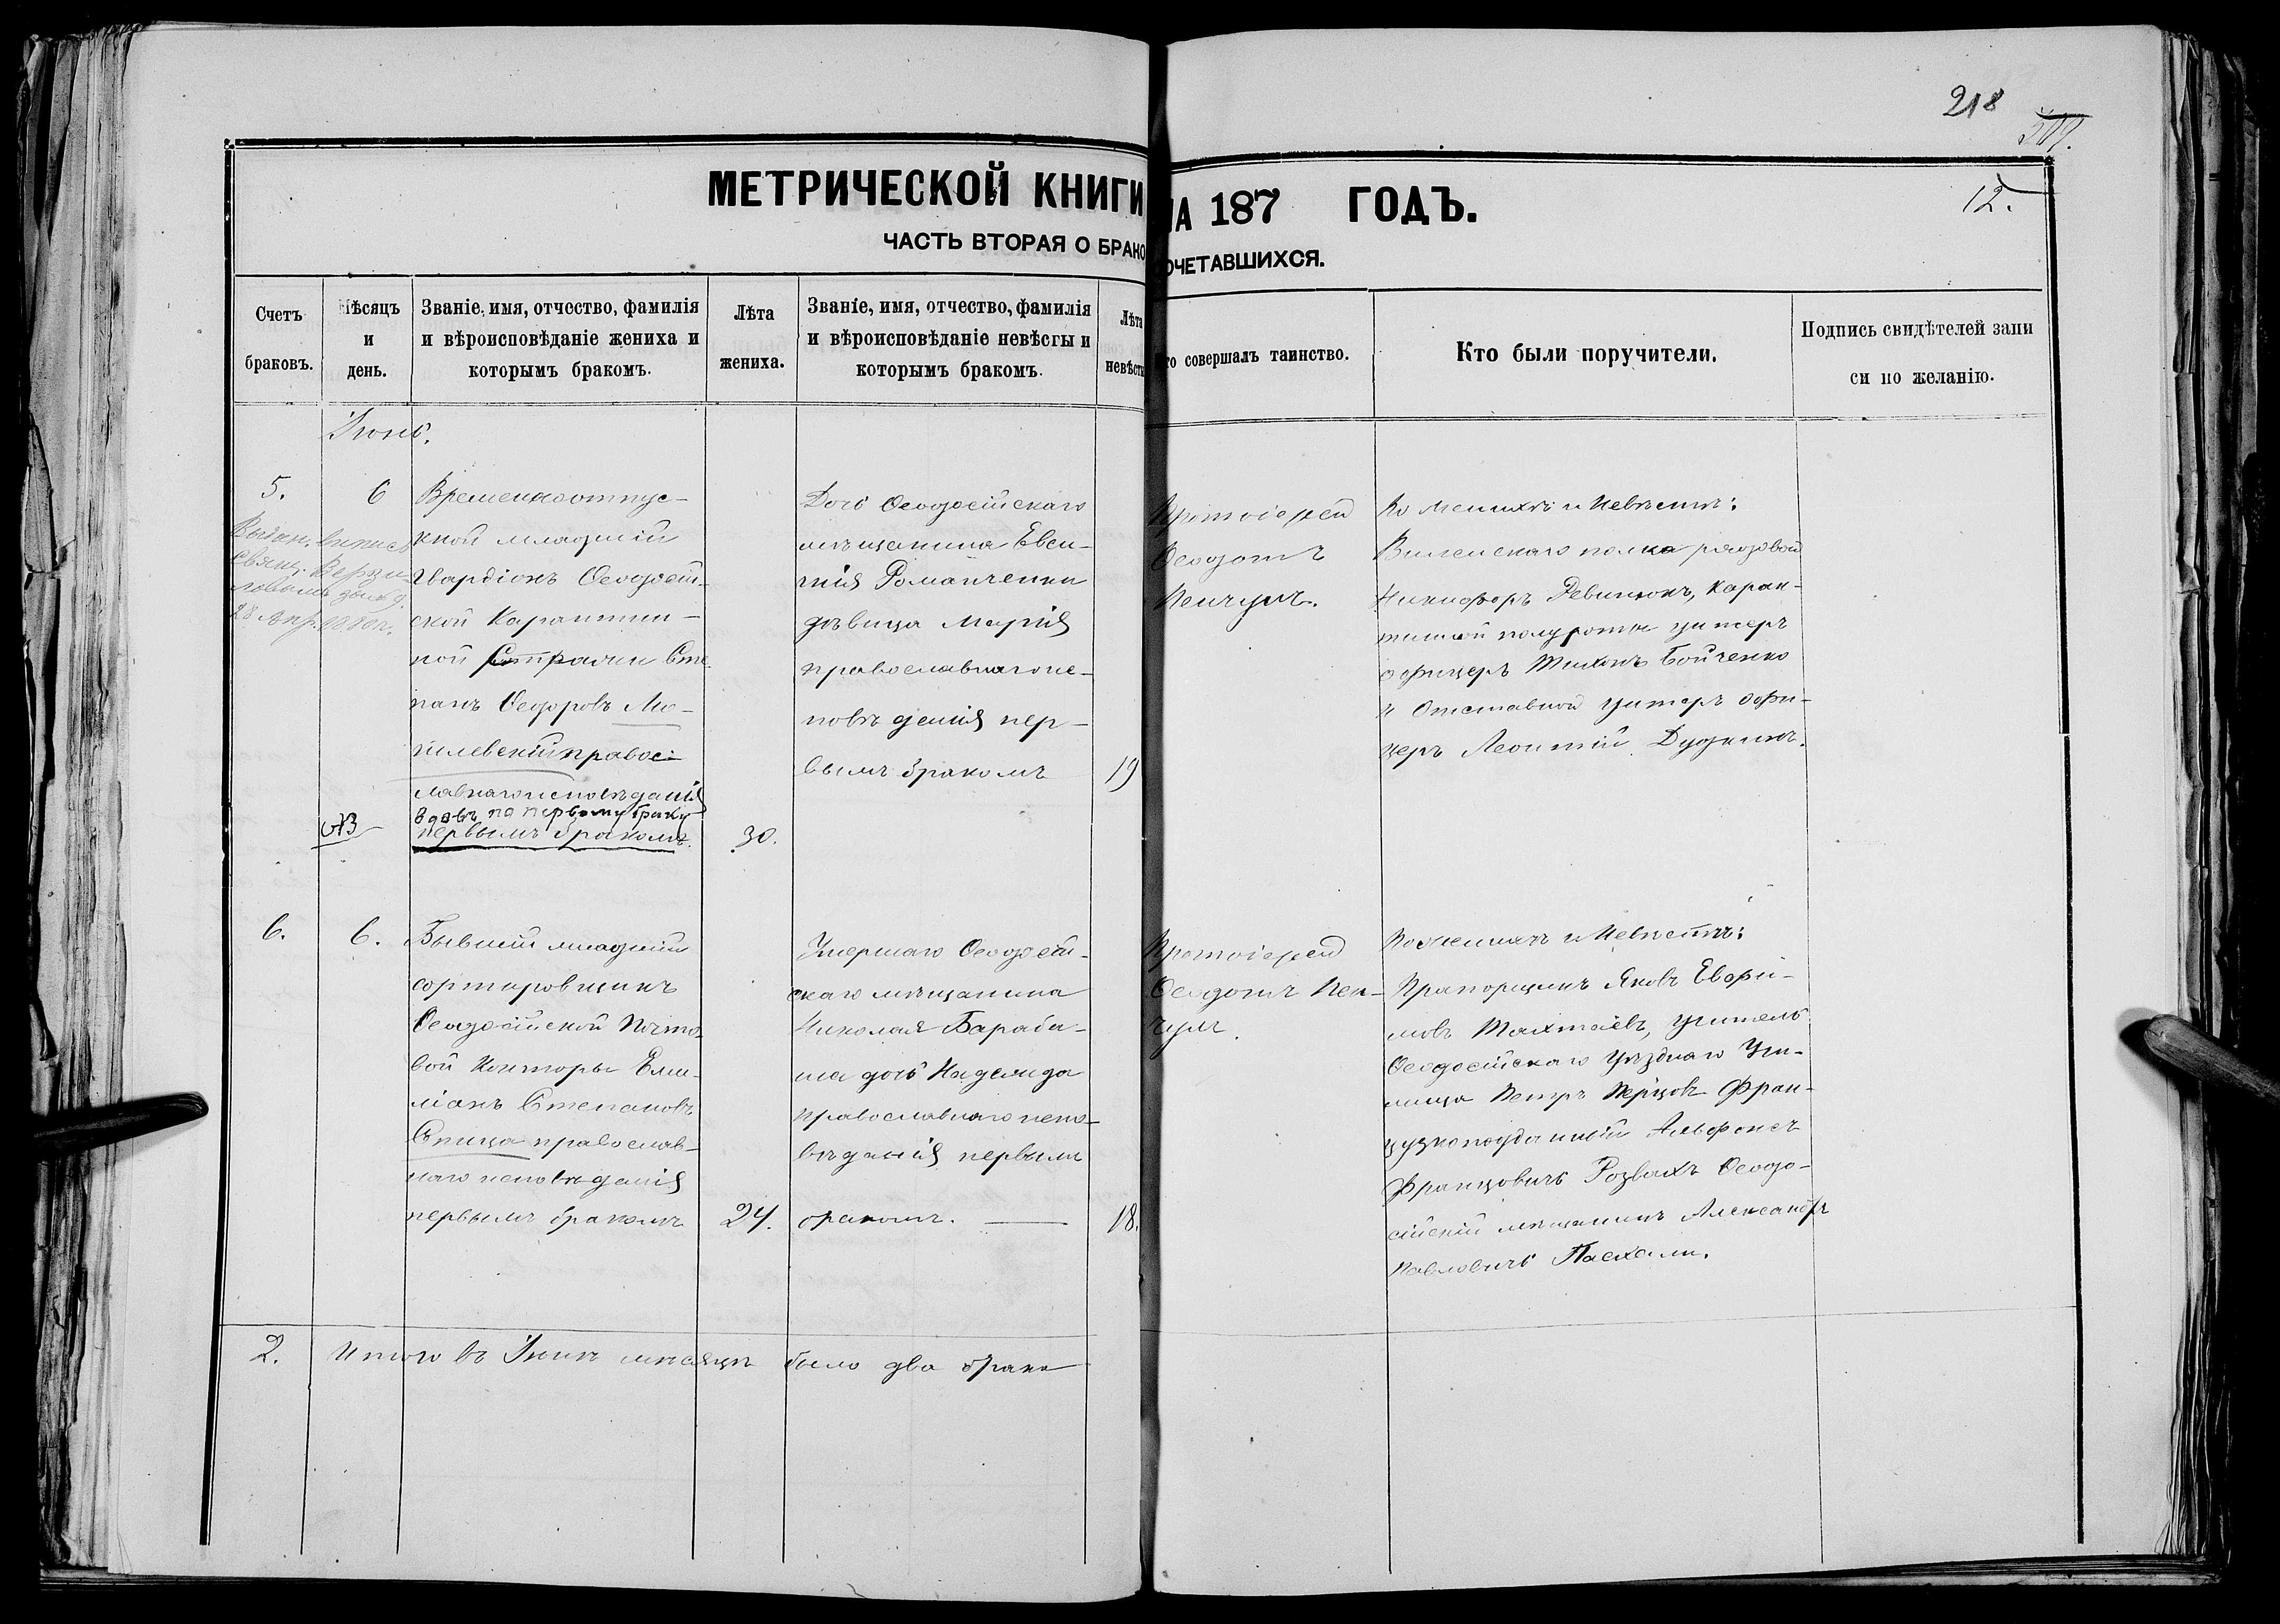 218
309.
12.
МЕТРИЧЕСКОЙ КНИГИ НА 187 ГОДЪ.
ЧАСТЬ ВТОРАЯ О БРАКОСОЧЕТАВШИХСЯ.
Счетъ
браковъ.
Мѣсяцъ
и
день.
Званіе, имя, отчество, фамилія
и вѣроисповѣданіе жениха и
которымъ бракомъ.
Лѣта
жениха.
Званіе, имя, отчество, фамилія
и вѣроисповѣданіе невѣсты и
которымъ бракомъ.
Лѣта
невѣсты
Кто совершалъ таинство.
Кто были поручители.
Подпись свидѣтелей запи
си по желанію.
Іюнь.
5.
Выдан. выпись
священ.
28 Апр.
6
Временноотпус-
кной младшій
гвардіонъ Ѳеодосій-
ской Карантин-
ной Стражи Сте-
панъ Ѳеодоровъ Мо-
гилевскій правос-
лавнаго исповѣданія
вдовъ по первому браку
первымъ бракомъ.
NB
30.
Дочь Ѳеодосійскаго
мѣщанина Евси-
гнія Романченки
дѣвица Марія
православнаго ис-
повѣданія пер-
вымъ бракомъ
19
Протоіерей
Ѳеодотъ
Пенчулъ.
По Женихѣ и Невѣстѣ:
Виленскаго полка рядовой
Никифоръ Левинюкъ, Каран-
тинной полуроты унтеръ
офицеръ Тихонъ Бойченко
и Отставной унтеръ офи-
церъ Леонтій Дудкинъ.
6.
6.
Бывшій младшій
сортировщикъ
Ѳеодосійской Почто-
вой Конторы Еми-
ліанъ Степановъ
Спица православ-
наго исповѣданія
первымъ бракомъ
24.
Умершаго Ѳеодосій-
скаго мѣщанина
Николая Бараба-
ша дочь Надежда
православнаго испо-
вѣданія первымъ
бракомъ.
18.
Протоіерей
Ѳеодотъ Пен-
чулъ.
По женихѣ и Невѣстѣ:
Прапорщикъ Яковъ Евфи-
мовъ Тахтаевъ, учитель
Ѳеодосійскаго Уѣзднаго Учи-
лища Петръ Перцовъ Фран-
цузкоподданный Альфонсъ
Францовичъ Розвахъ Ѳеодо-
сійскій мѣщанинъ Александръ
Павловичъ Пасхали.
2.
Итого въ Іюнѣ мѣсяцѣ было два брака